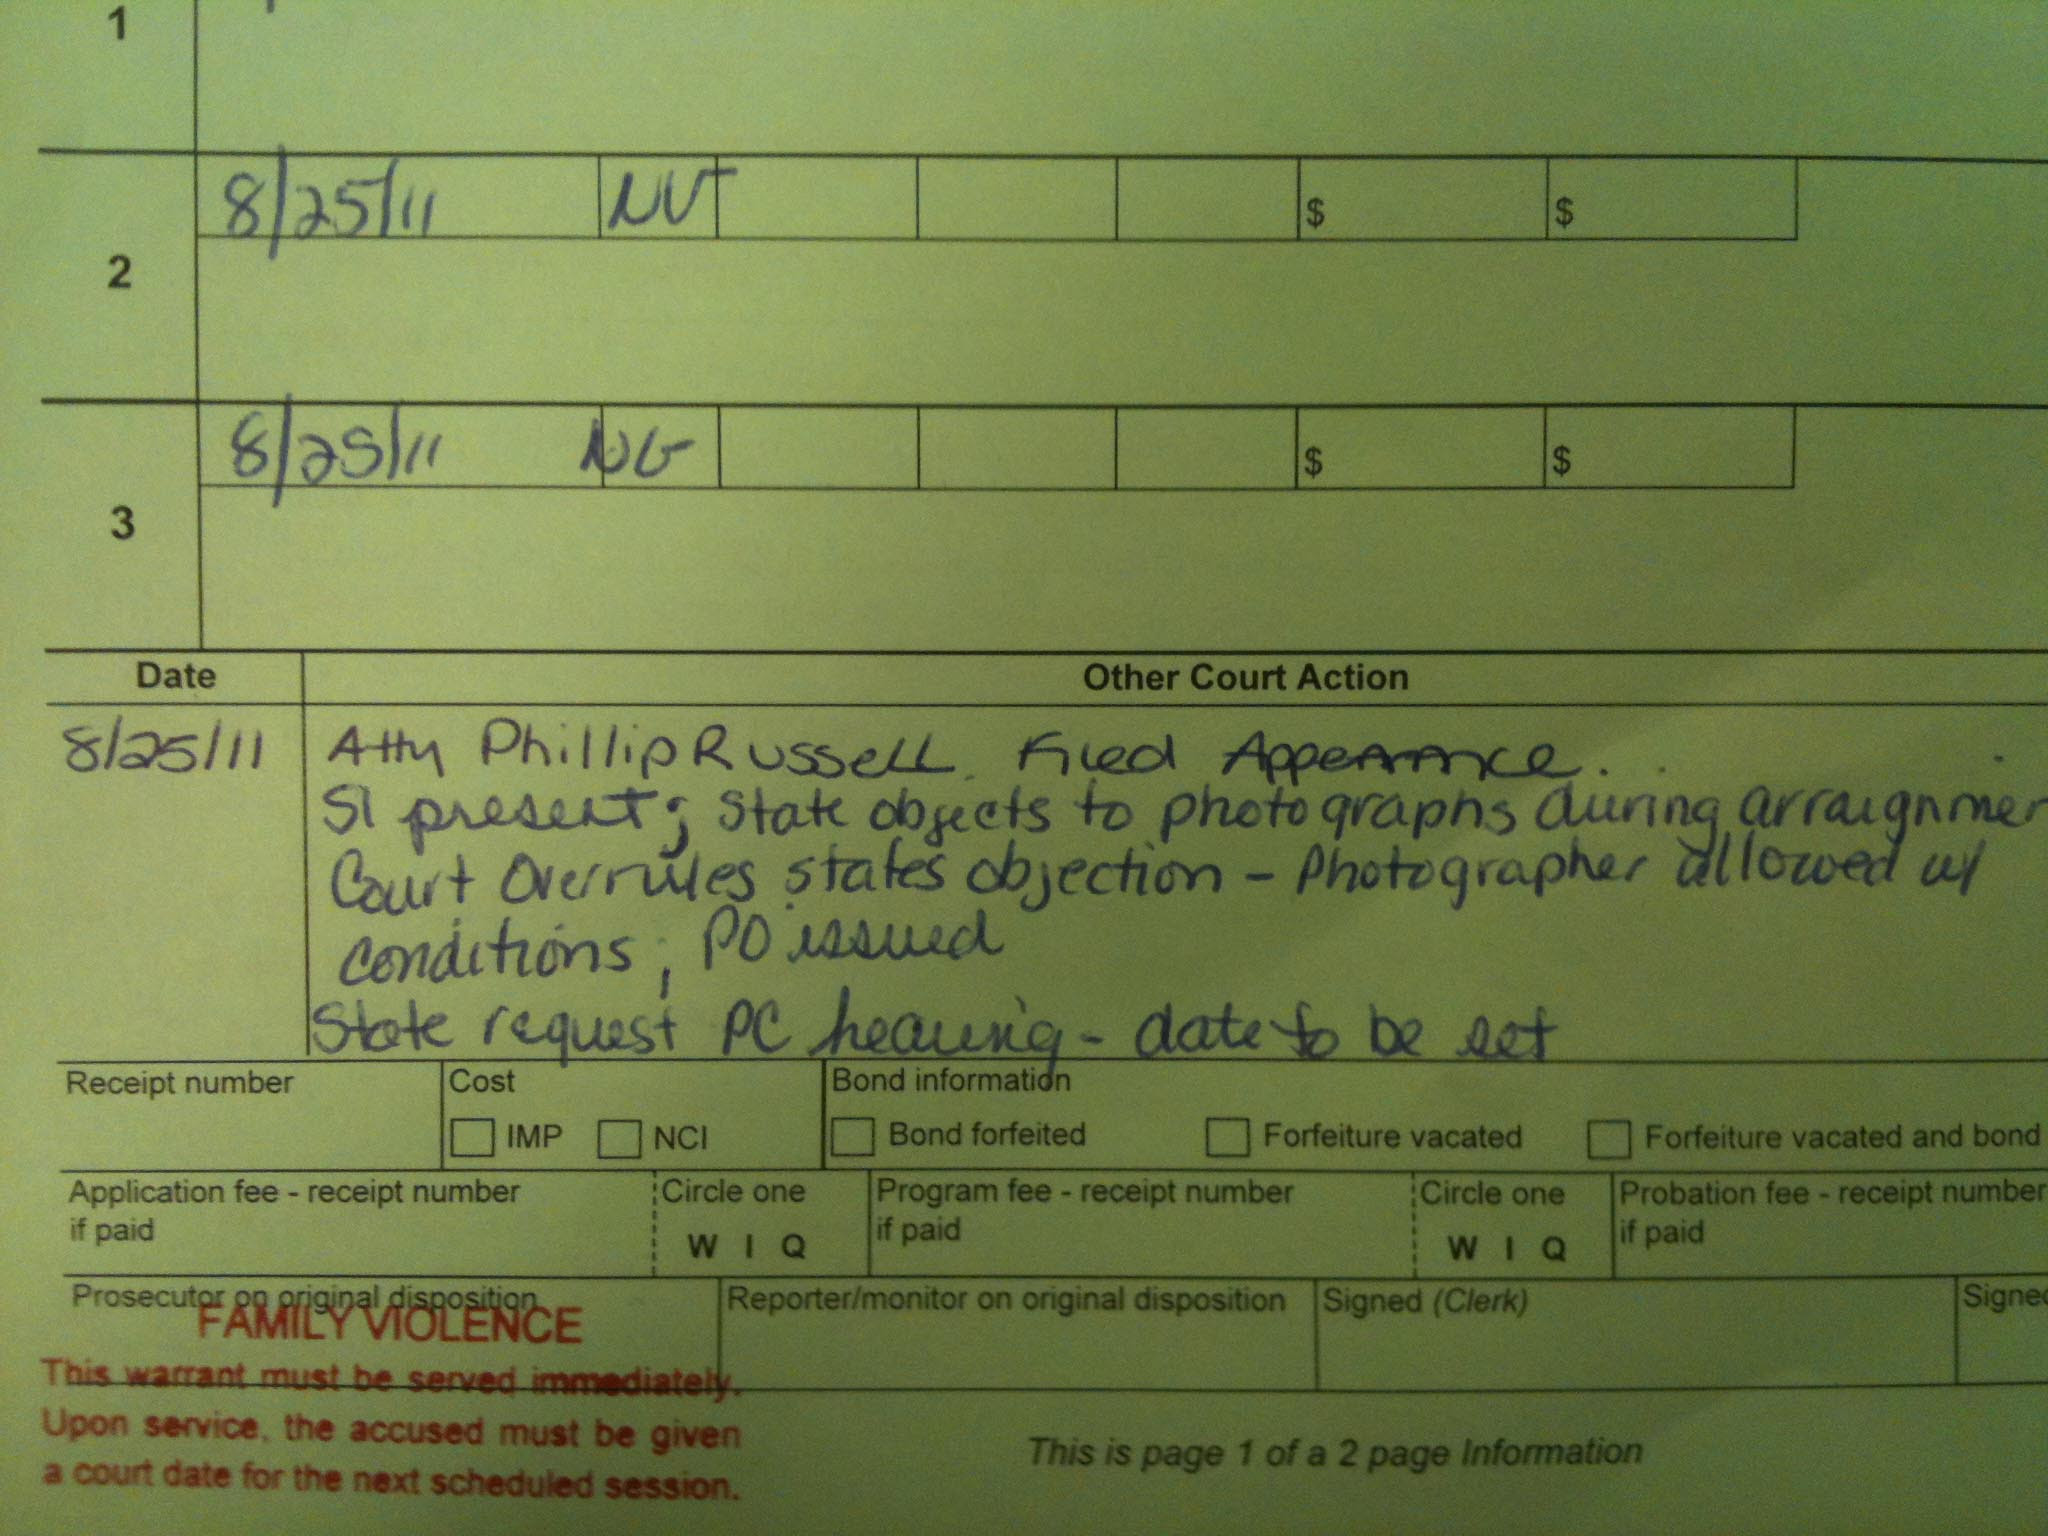 1
8/25/11 NG $ $
2
8/25/11 NG $ $
3
Date Other Court Action
8/25/11 Atty Phillip Russell Filed Appearance.
SI present; State objects to photographs during arraignmen
Court Overrules states objection - Photographer allowed w/
conditions; PO issued
State request PC hearing - date to be set
Receipt number Cost Bond information
IMP NCI Bond forfeited Forfeiture vacated Forfeiture vacated and bond
Application fee - receipt number Circle one Program fee - receipt number Circle one Probation fee - receipt number
if paid W I Q if paid W I Q if paid
Prosecutor on original disposition Reporter/monitor on original disposition Signed (Clerk) Signed
FAMILY VIOLENCE
This warrant must be served immediately.
Upon service, the accused must be given
a court date for the next scheduled session.
This is page 1 of a 2 page Information